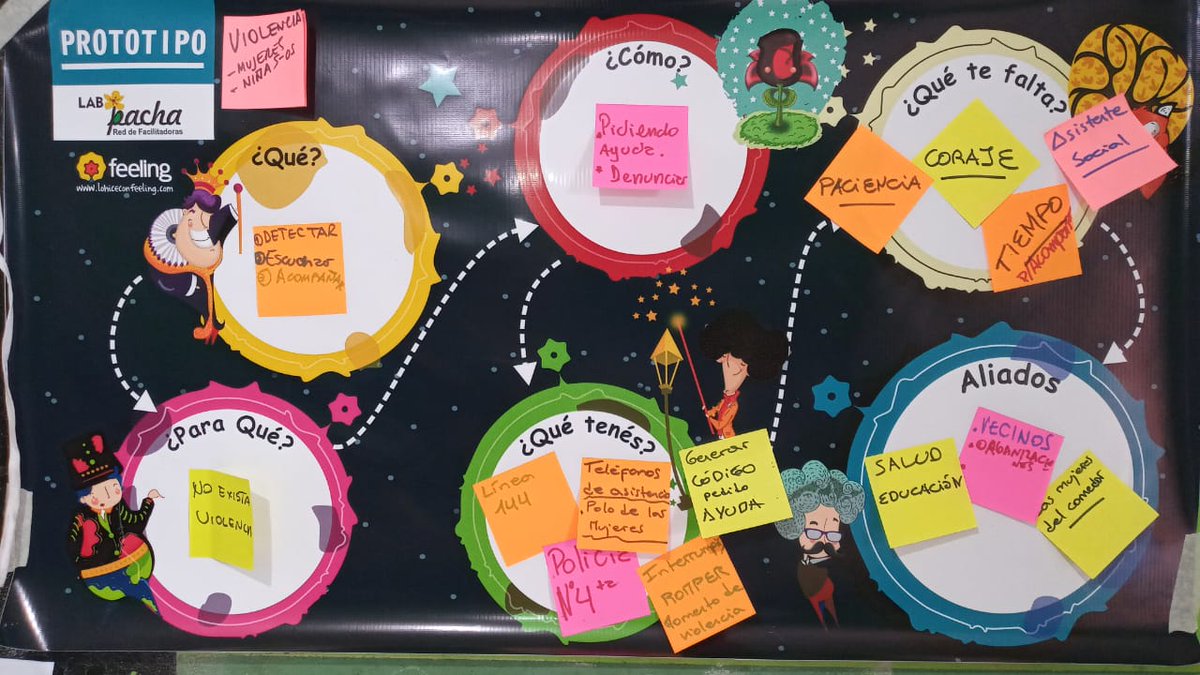 PROTOTIPO
LAB
pacha
Red de Facilitadoras
feeling
www.lohiceconfeeling.com
VIOLENCIA
-MUJERES
NIÑAS-OS
¿Qué?
① DETECTAR
② Escuchar
③ ACOMPAÑA
¿Para Qué?
NO EXISTA
VIOLENCIA
¿Cómo?
. Pidiendo
Ayuda.
. Denuncias
¿Qué tenés?
Línea
144
Teléfonos
de asistencia
. Polo de las
Mujeres
Policía
N°4
Generar
CÓDIGO
pedilo
AYUDA
Interrumpir
ROMPER
momento de
violencia
¿Qué te falta?
PACIENCIA
CORAJE
TIEMPO
Asistente
Social
Aliados
SALUD
EDUCACIÓN
.VECINOS
.ORGANIZACIO
NES
mujeres
del comedor